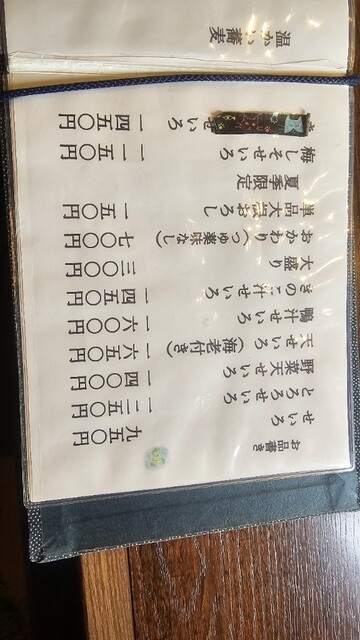 お品書き
せいろ 九五〇円
とろろせいろ 一二五〇円
野菜天せいろ 一四〇〇円
天せいろ(海老付き) 一六五〇円
鴨汁せいろ 一六〇〇円
きのこ汁せいろ 一四五〇円
大盛り 三〇〇円
おかわり(つゆ薬味なし) 七〇〇円
単品大根おろし 一五〇円
夏季限定
梅しそせいろ 一一五〇円
せいろ 一四五〇円
温かい蕎麦